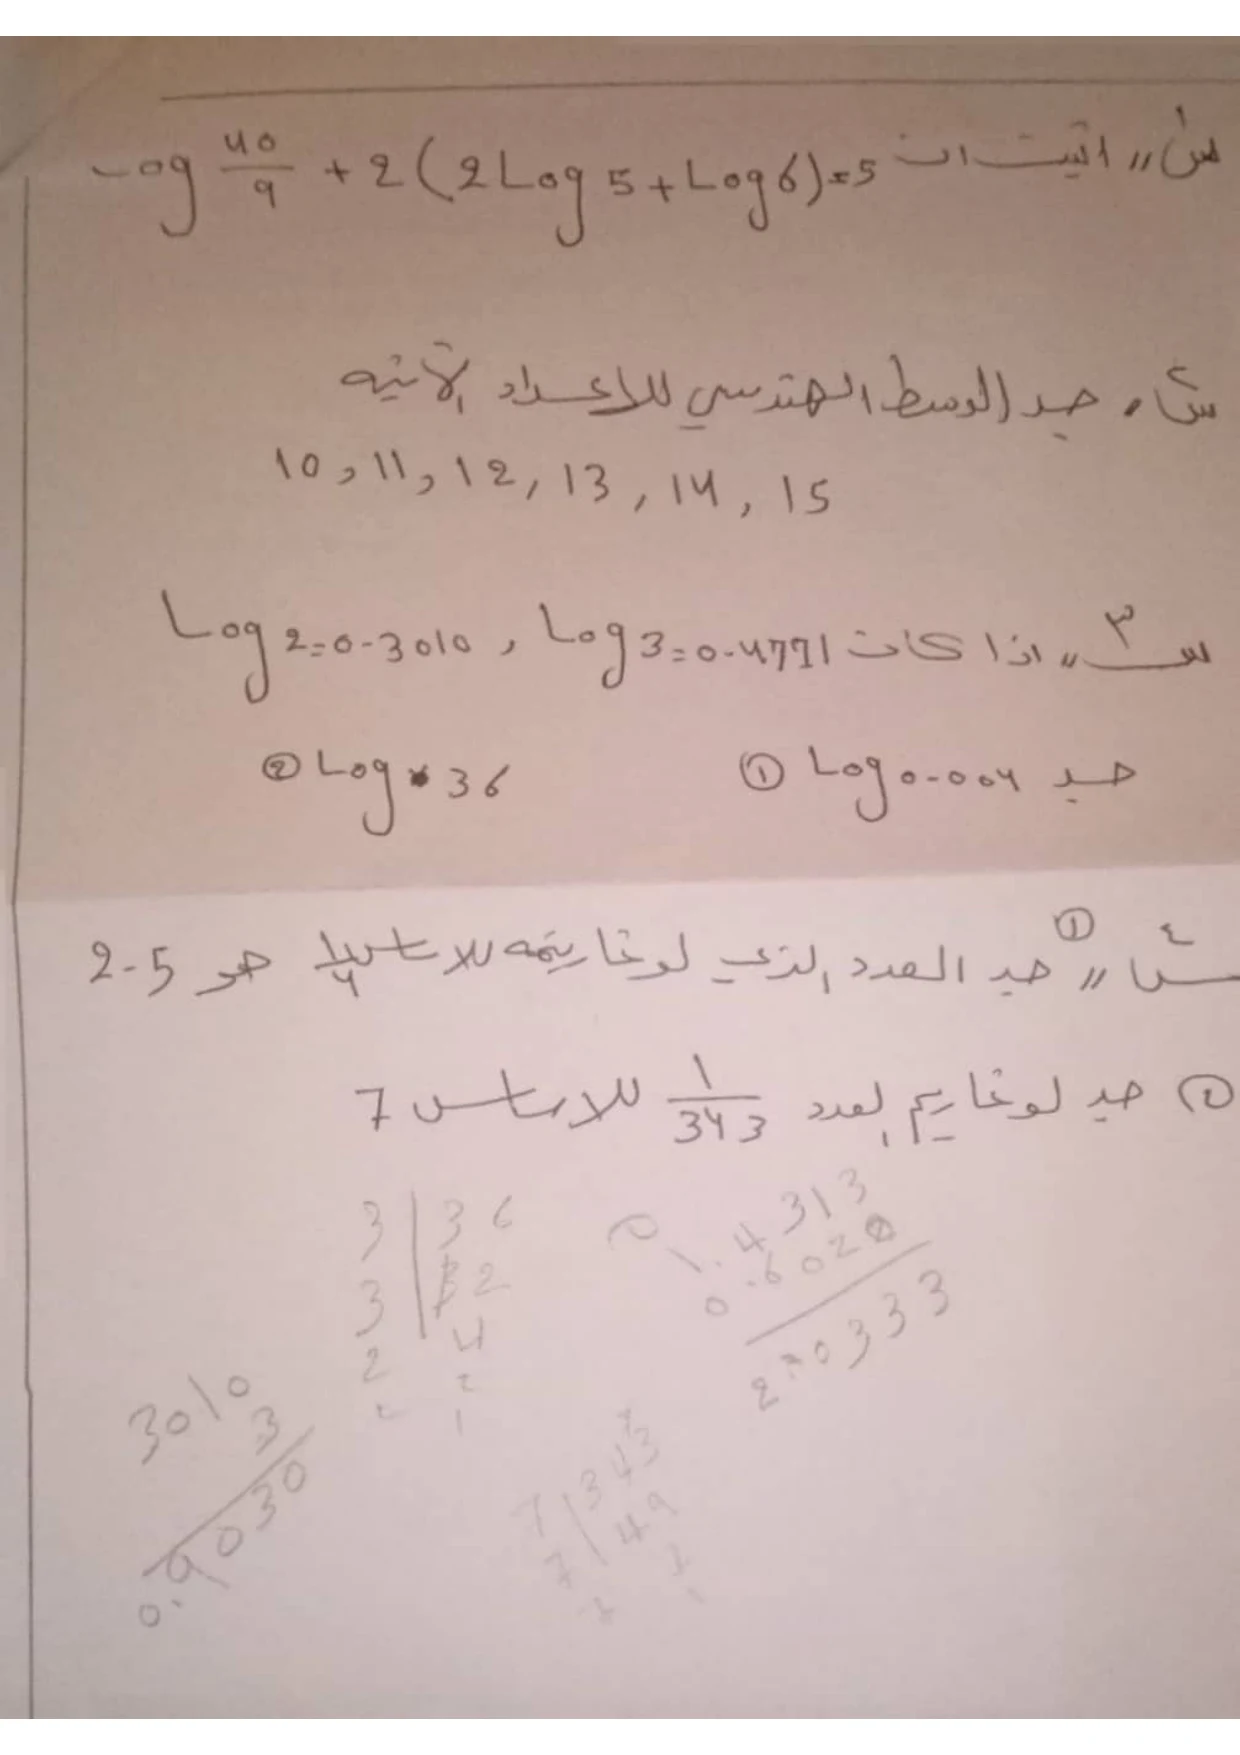 س١// اثبت ان Log 40/9 + 2(2Log 5 + Log 6) = 5
س٢. جد الوسط الهندسي للاعداد الآتيه
10, 11, 12, 13, 14, 15
س٣// اذا كان Log 2=0.3010, Log 3=0.4771
جد ① Log 0.004 ② Log 36
س٤// ① جد العدد الذي لوغاريتمه للاساس 1/4 هو 2.5
② جد لوغاريتم العدد 1/343 للاساس 7
3 | 36
3 | 12
2 4
2
1
1.4313
0.6020
2.0333
3010
3
0.9030
7 | 343
7 | 49